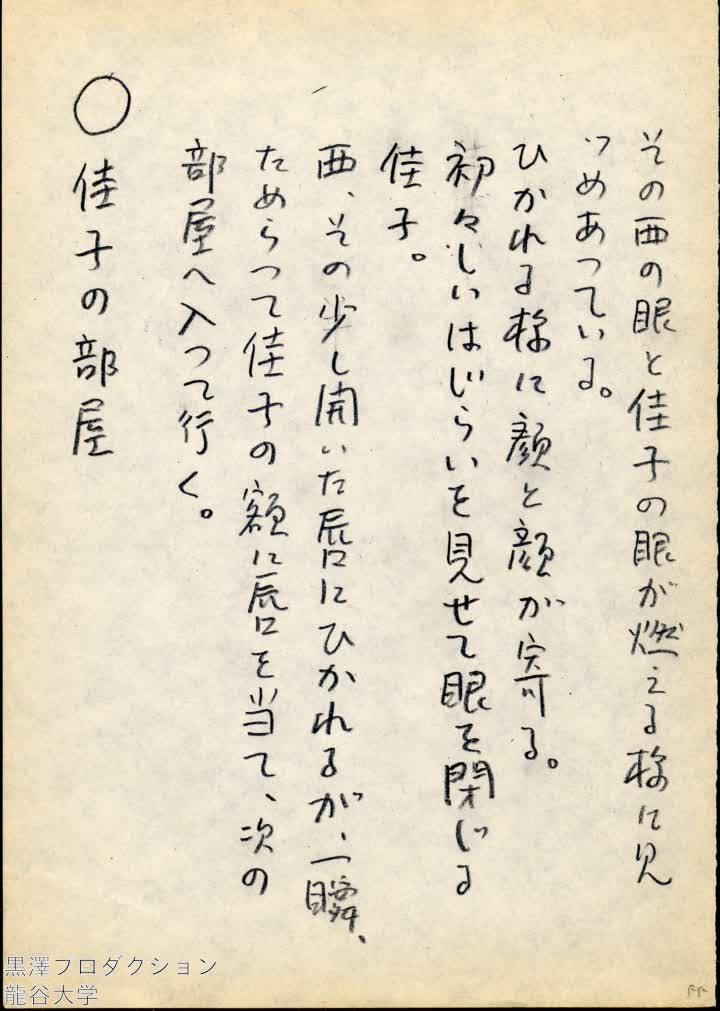 その西の眼と佳子の眼が燃える様に見
つめあつている。
ひかれる様に顔と顔が寄る。
初々しいはじらいを見せて眼を閉じる
佳子。
西、その少し開いた唇にひかれるが、一瞬、
ためらつて佳子の額に唇を当て、次の
部屋へ入つて行く。
○佳子の部屋
黒澤プロダクション
龍谷大学